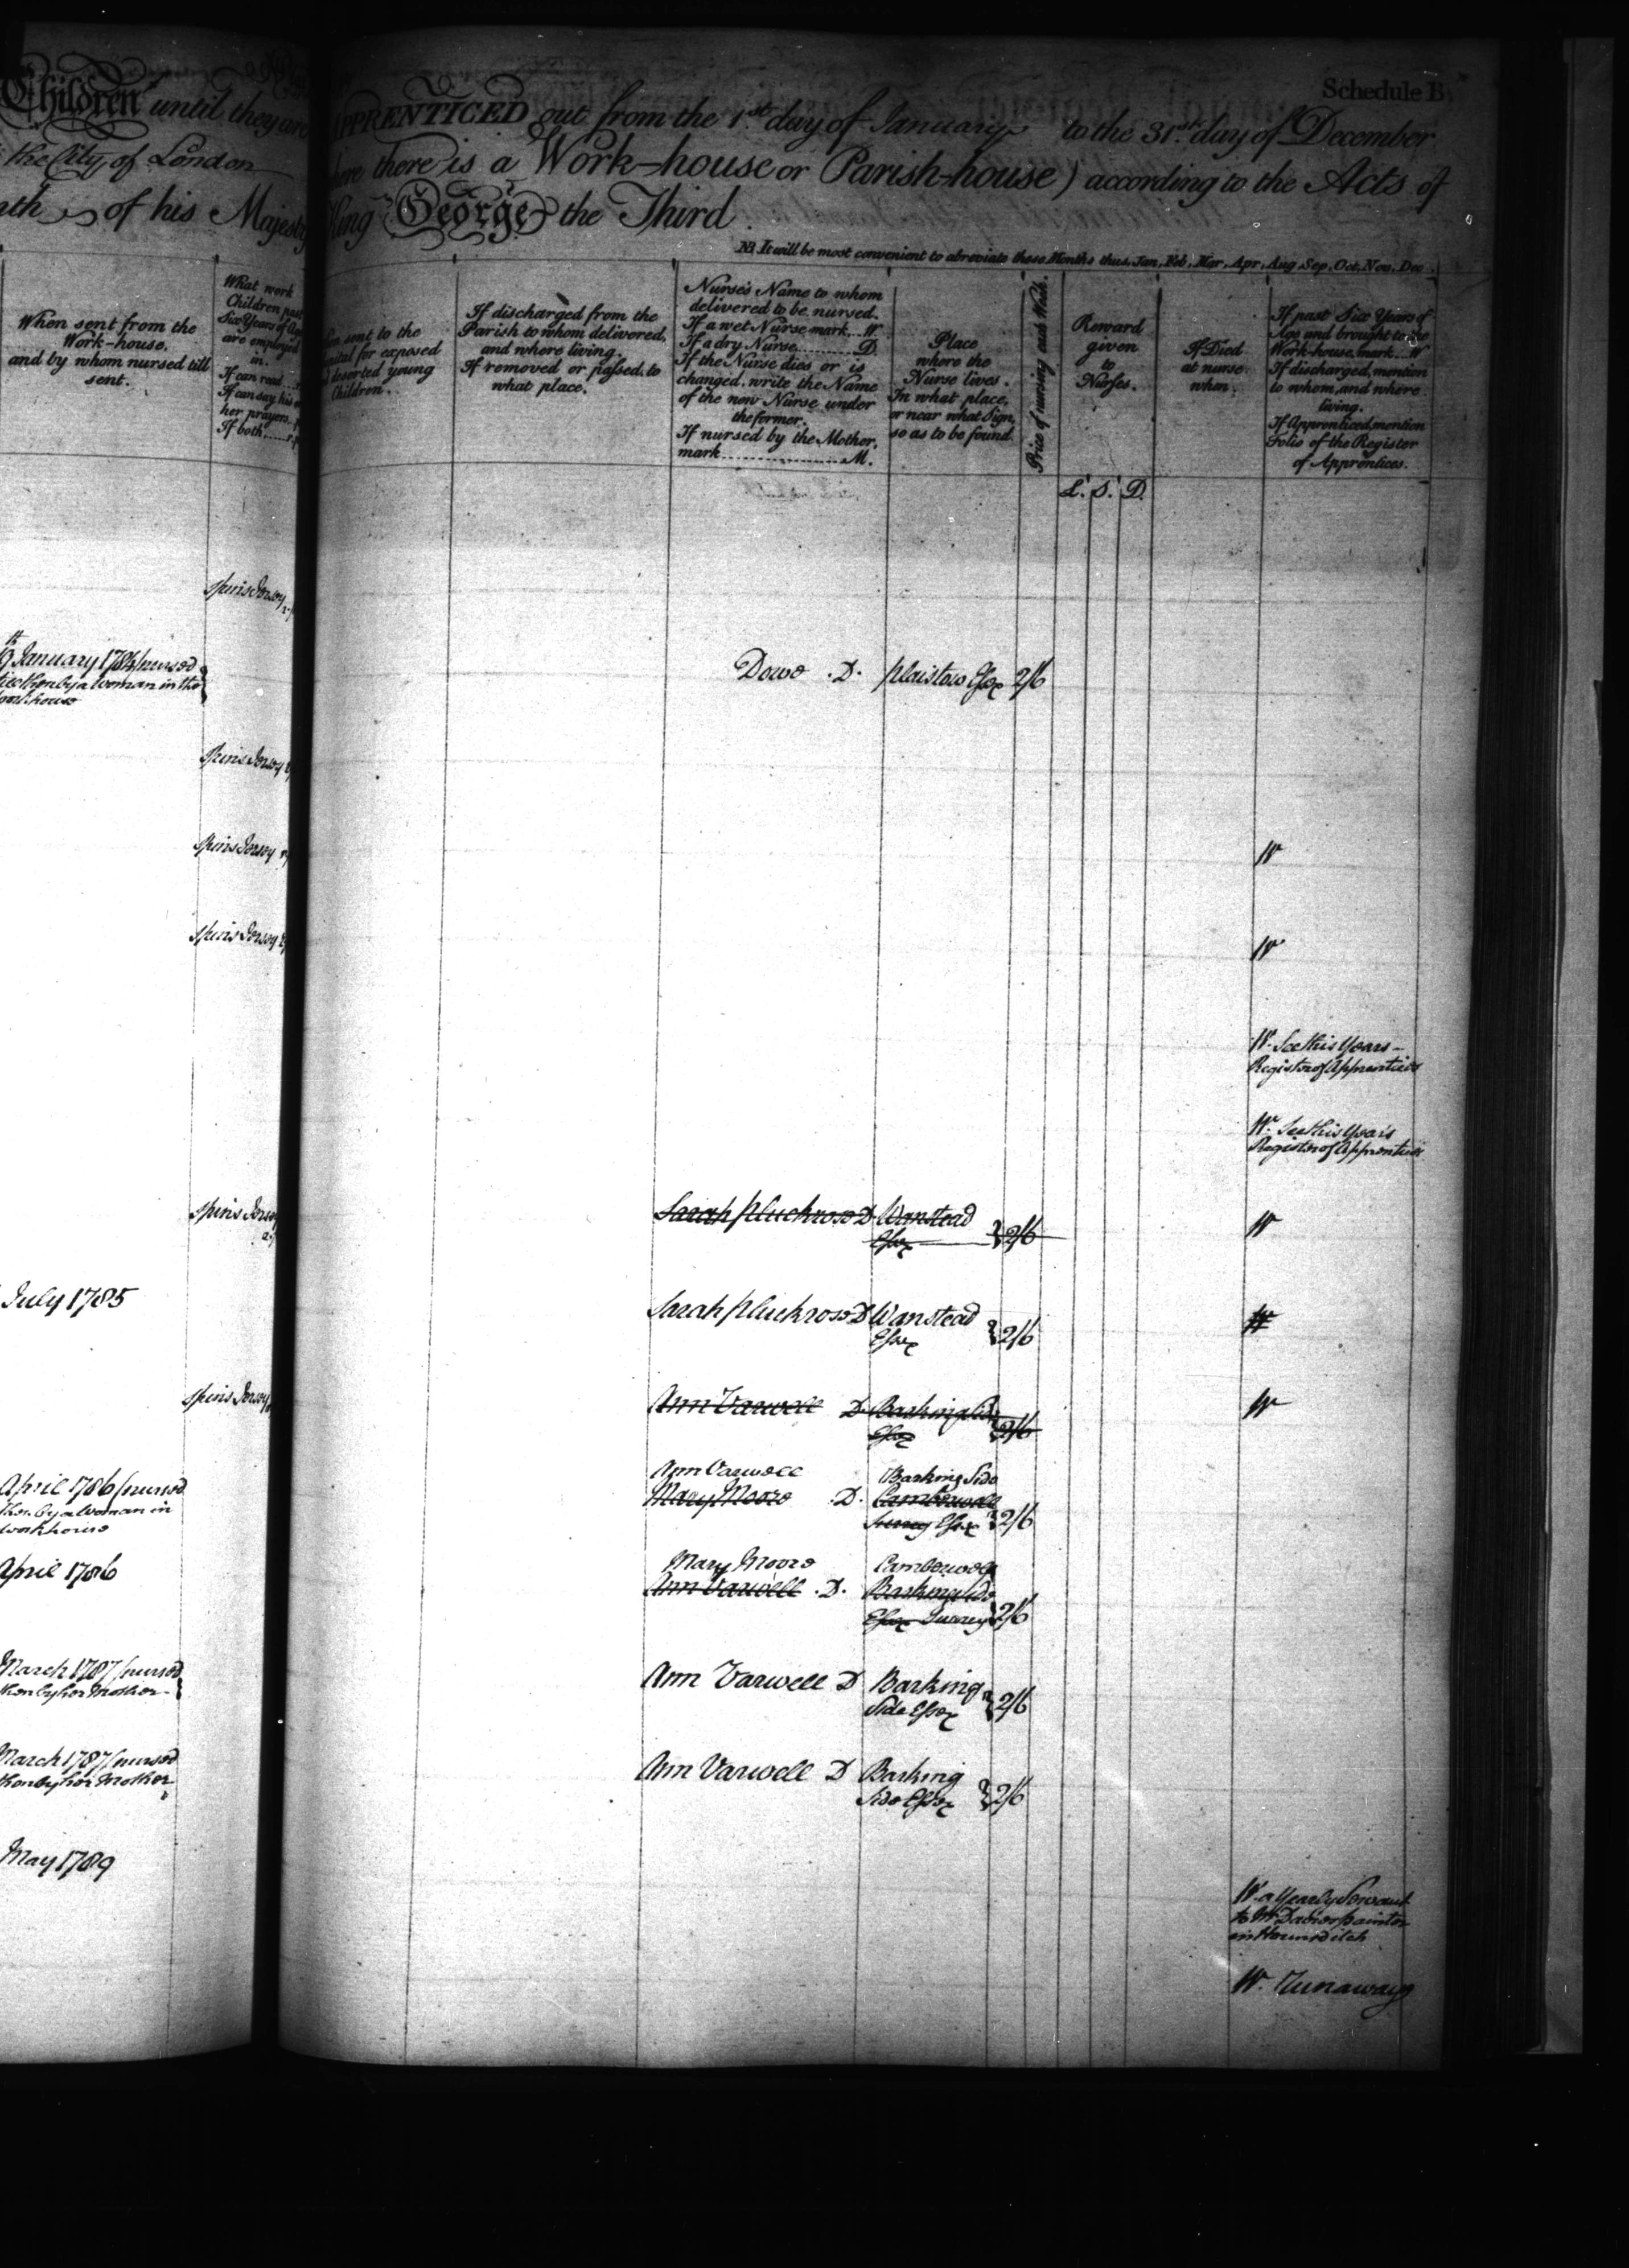 Schedule B
Children until they are
APPRENTICED out from the 1st day of January to the 31st day of December
the City of London
there is a Work-house or Parish-house) according to the Acts of
of his Majesty
King George the Third
NB It will be most convenient to abreviate these Months thus, Jan, Feb, Mar, Apr, Aug, Sep, Oct, Nov, Dec.
When sent from the
Work-house,
and by whom nursed till
sent.
What work
Children past
Six Years of Age
are employed
in.
If can read
If can say his or
her prayers
If both
sent to the
for exposed
deserted young
Children.
If discharged from the
Parish to whom delivered,
and where living.
If removed or passed, to
what place.
Nurse's Name to whom
delivered to be nursed.
If a wet Nurse mark...W.
If a dry Nurse.........D.
If the Nurse dies or is
changed, write the Name
of the new Nurse under
the former.
If nursed by the Mother,
mark..................M.
Place
where the
Nurse lives.
In what place,
or near what Sign,
so as to be found.
Price of nursing each Week.
Reward
given
to
Nurses.
If Died
at nurse
when.
If past Six Years of
Age and brought to the
Work-house, mark...W
If discharged, mention
to whom, and where
living.
If Apprenticed, mention
Folio of the Register
of Apprentices.
L. S. D.
Spins Jersey
January 1784 nursed
till then by a woman in the
workhouse
Dowe .D. Plaistow Essex 2/6
Spins Jersey
Spins Jersey
W
Spins Jersey
W
W. See this Years
Register of Apprentices
W. See this Years
Register of Apprentices
Spins Jersey
Sarah Pluckrose D Wanstead
Essex 2/6
W
July 1785
Sarah Pluckrose D Wanstead
Essex 2/6
W
Spins Jersey
Ann Varwell D Barking Side
Essex 2/6
W
April 1786 nursed
then by a Woman in
workhouse
Ann Varwell Barking Side
Mary Moore .D. Camberwell
Surrey Essex 2/6
April 1786
Mary Moore Camberwell
Ann Varwell .D. Barking Side
Essex Surrey 2/6
March 1787 nursed
then by her Mother
Ann Varwell D Barking
Side Essex 2/6
March 1787 nursed
then by her Mother
Ann Varwell D Barking
Side Essex 2/6
May 1789
W. a Yearly Servant
to Mr Davies painter
in Houndsditch
W. Runaway